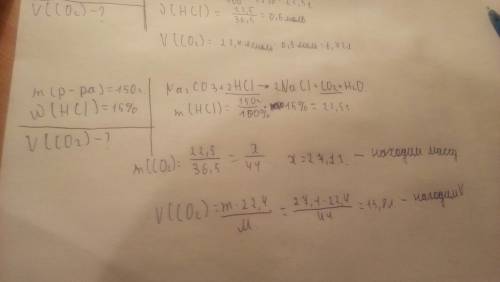 V(CO₂)-?
ν(HCl) = 22,5/36,5 = 0,6моль
V(CO₂) = 22,4
m(р-ра)=150г
ω(HCl)=15%
V(CO₂)-?
Na₂CO3+2HCl→2NaCl+CO₂+H₂O
m(HCl)=150г/100% · 15% = 22,5г
m(CO₂): 22,5/36,5 = x/44 x=27,1г. – находим массу
V(CO₂)= m·22,4/M = 27,1·22,4/44 = 13,8л – находим V